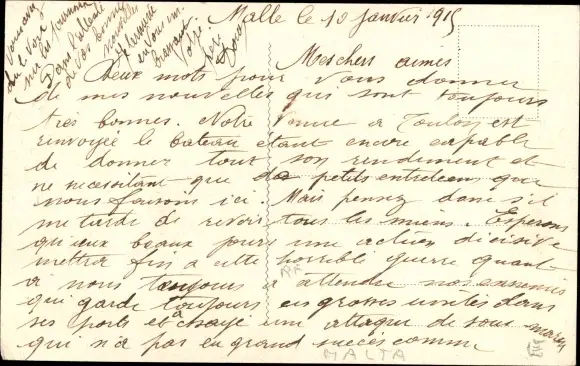 Malle le 10 Janvier 1915
Mes chers aimés
Deux mots pour vous donner
de mes nouvelles qui sont toujours
très bonnes. Notre venue a Toulon est
renvoyée le bateau étant encore capable
de donner tout son rendement et
ne necessitant que de petits entretiens que
nous faisons ici. Mais pensez donc s'il
me tarde de revoir tous les miens. Esperons
qu'eux beaux jours une action décisive
mettra fin a cette horrible guerre quant
a nous toujours a attendre nos ennemis
qui garde toujours en grosses unités dans
ses ports et essayé une attaque de sous marin
qui n'a pas eu grand succès comme
vous avez
du le voir
sur les journaux
Dans l'attente
de vos bonnes
nouvelles
je termine
en vous
embrassant
Votre
RF
MALTA